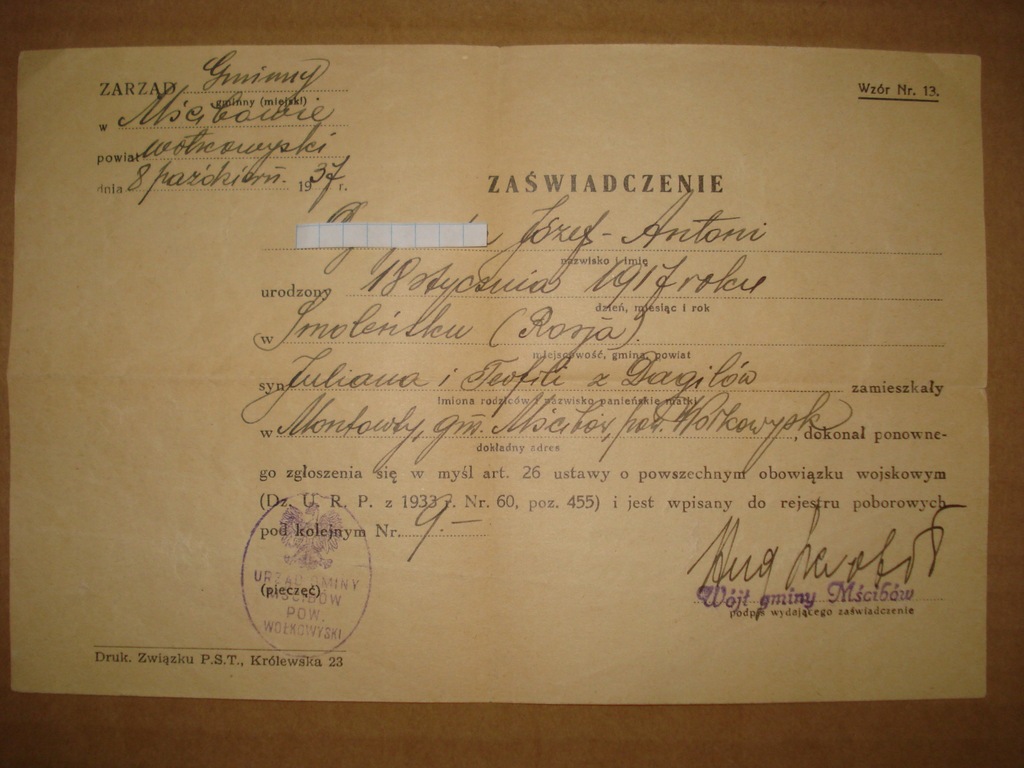 ZARZĄD Gminny
gminny (miejski)
w Mścibowie
powiat wołkowyski
dnia 8 październ. 1937 r.
Wzór Nr. 13.
ZAŚWIADCZENIE
Józef - Antoni
nazwisko i imię
urodzony 18 stycznia 1917 roku
dzień, miesiąc i rok
w Smoleńsku (Rosja).
miejscowość, gmina, powiat
syn Juliana i Teofili z Dagilów zamieszkały
imiona rodziców i nazwisko panieńskie matki
w Montowty, gm. Mścibów, pow. Wołkowysk, dokonał ponowne-
dokładny adres
go zgłoszenia się w myśl art. 26 ustawy o powszechnym obowiązku wojskowym
(Dz. U. R. P. z 1933 r. Nr. 60, poz. 455) i jest wpisany do rejestru poborowych
pod kolejnym Nr. 9.-
(pieczęć)
URZĄD GMINY
MŚCIBÓW
POW.
WOŁKOWYSKI
Wójt gminy Mścibów
podpis wydającego zaświadczenie
Druk. Związku P.S.T., Królewska 23